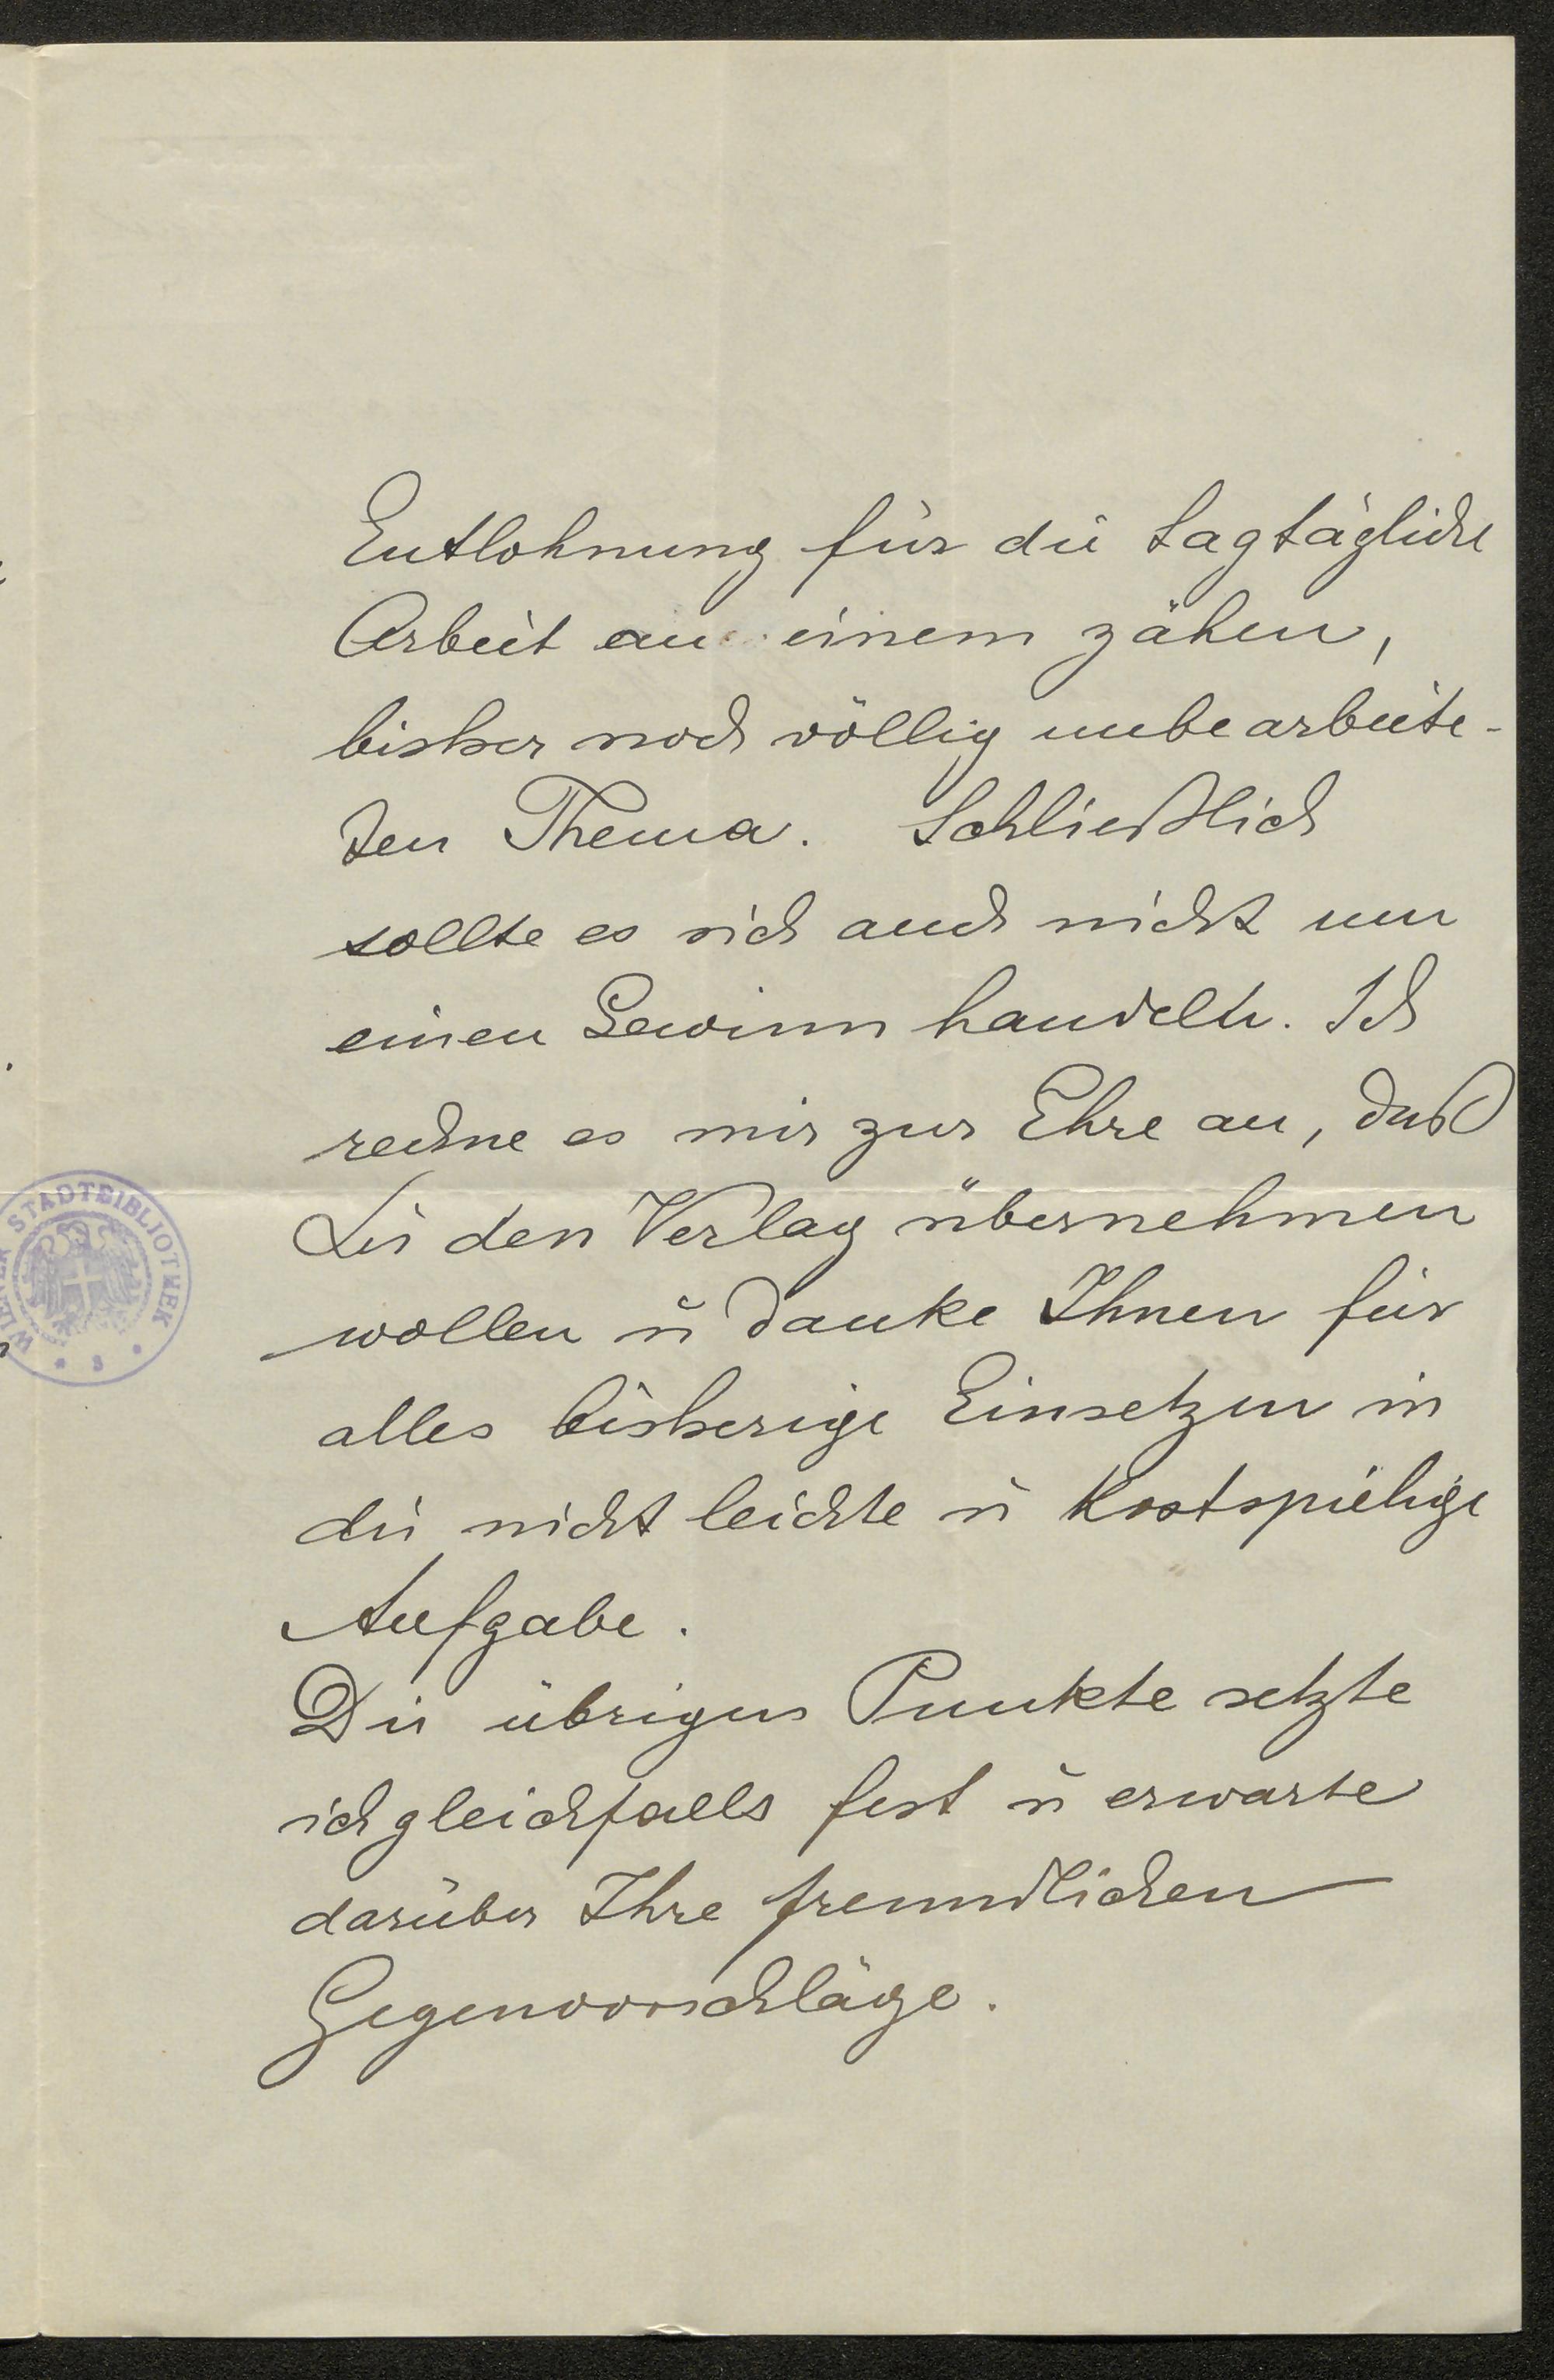 Entlohnung für die tagtägliche
Arbeit an einem zähen,
bisher noch völlig unbearbeite-
ten Thema. Schließlich
sollte es sich auch nicht um
einen Gewinn handeln. Ich
rechne es mir zur Ehre an, daß
Sie den Verlag übernehmen
wollen u danke Ihnen für
alles bisherige Einsetzen in
die nicht leichte u kostspielige
Aufgabe.
Die übrigen Punkte setzte
ich gleichfalls fest u erwarte
darüber Ihre freundlichen
Gegenvorschläge.
WIENER STADTBIBLIOTHEK